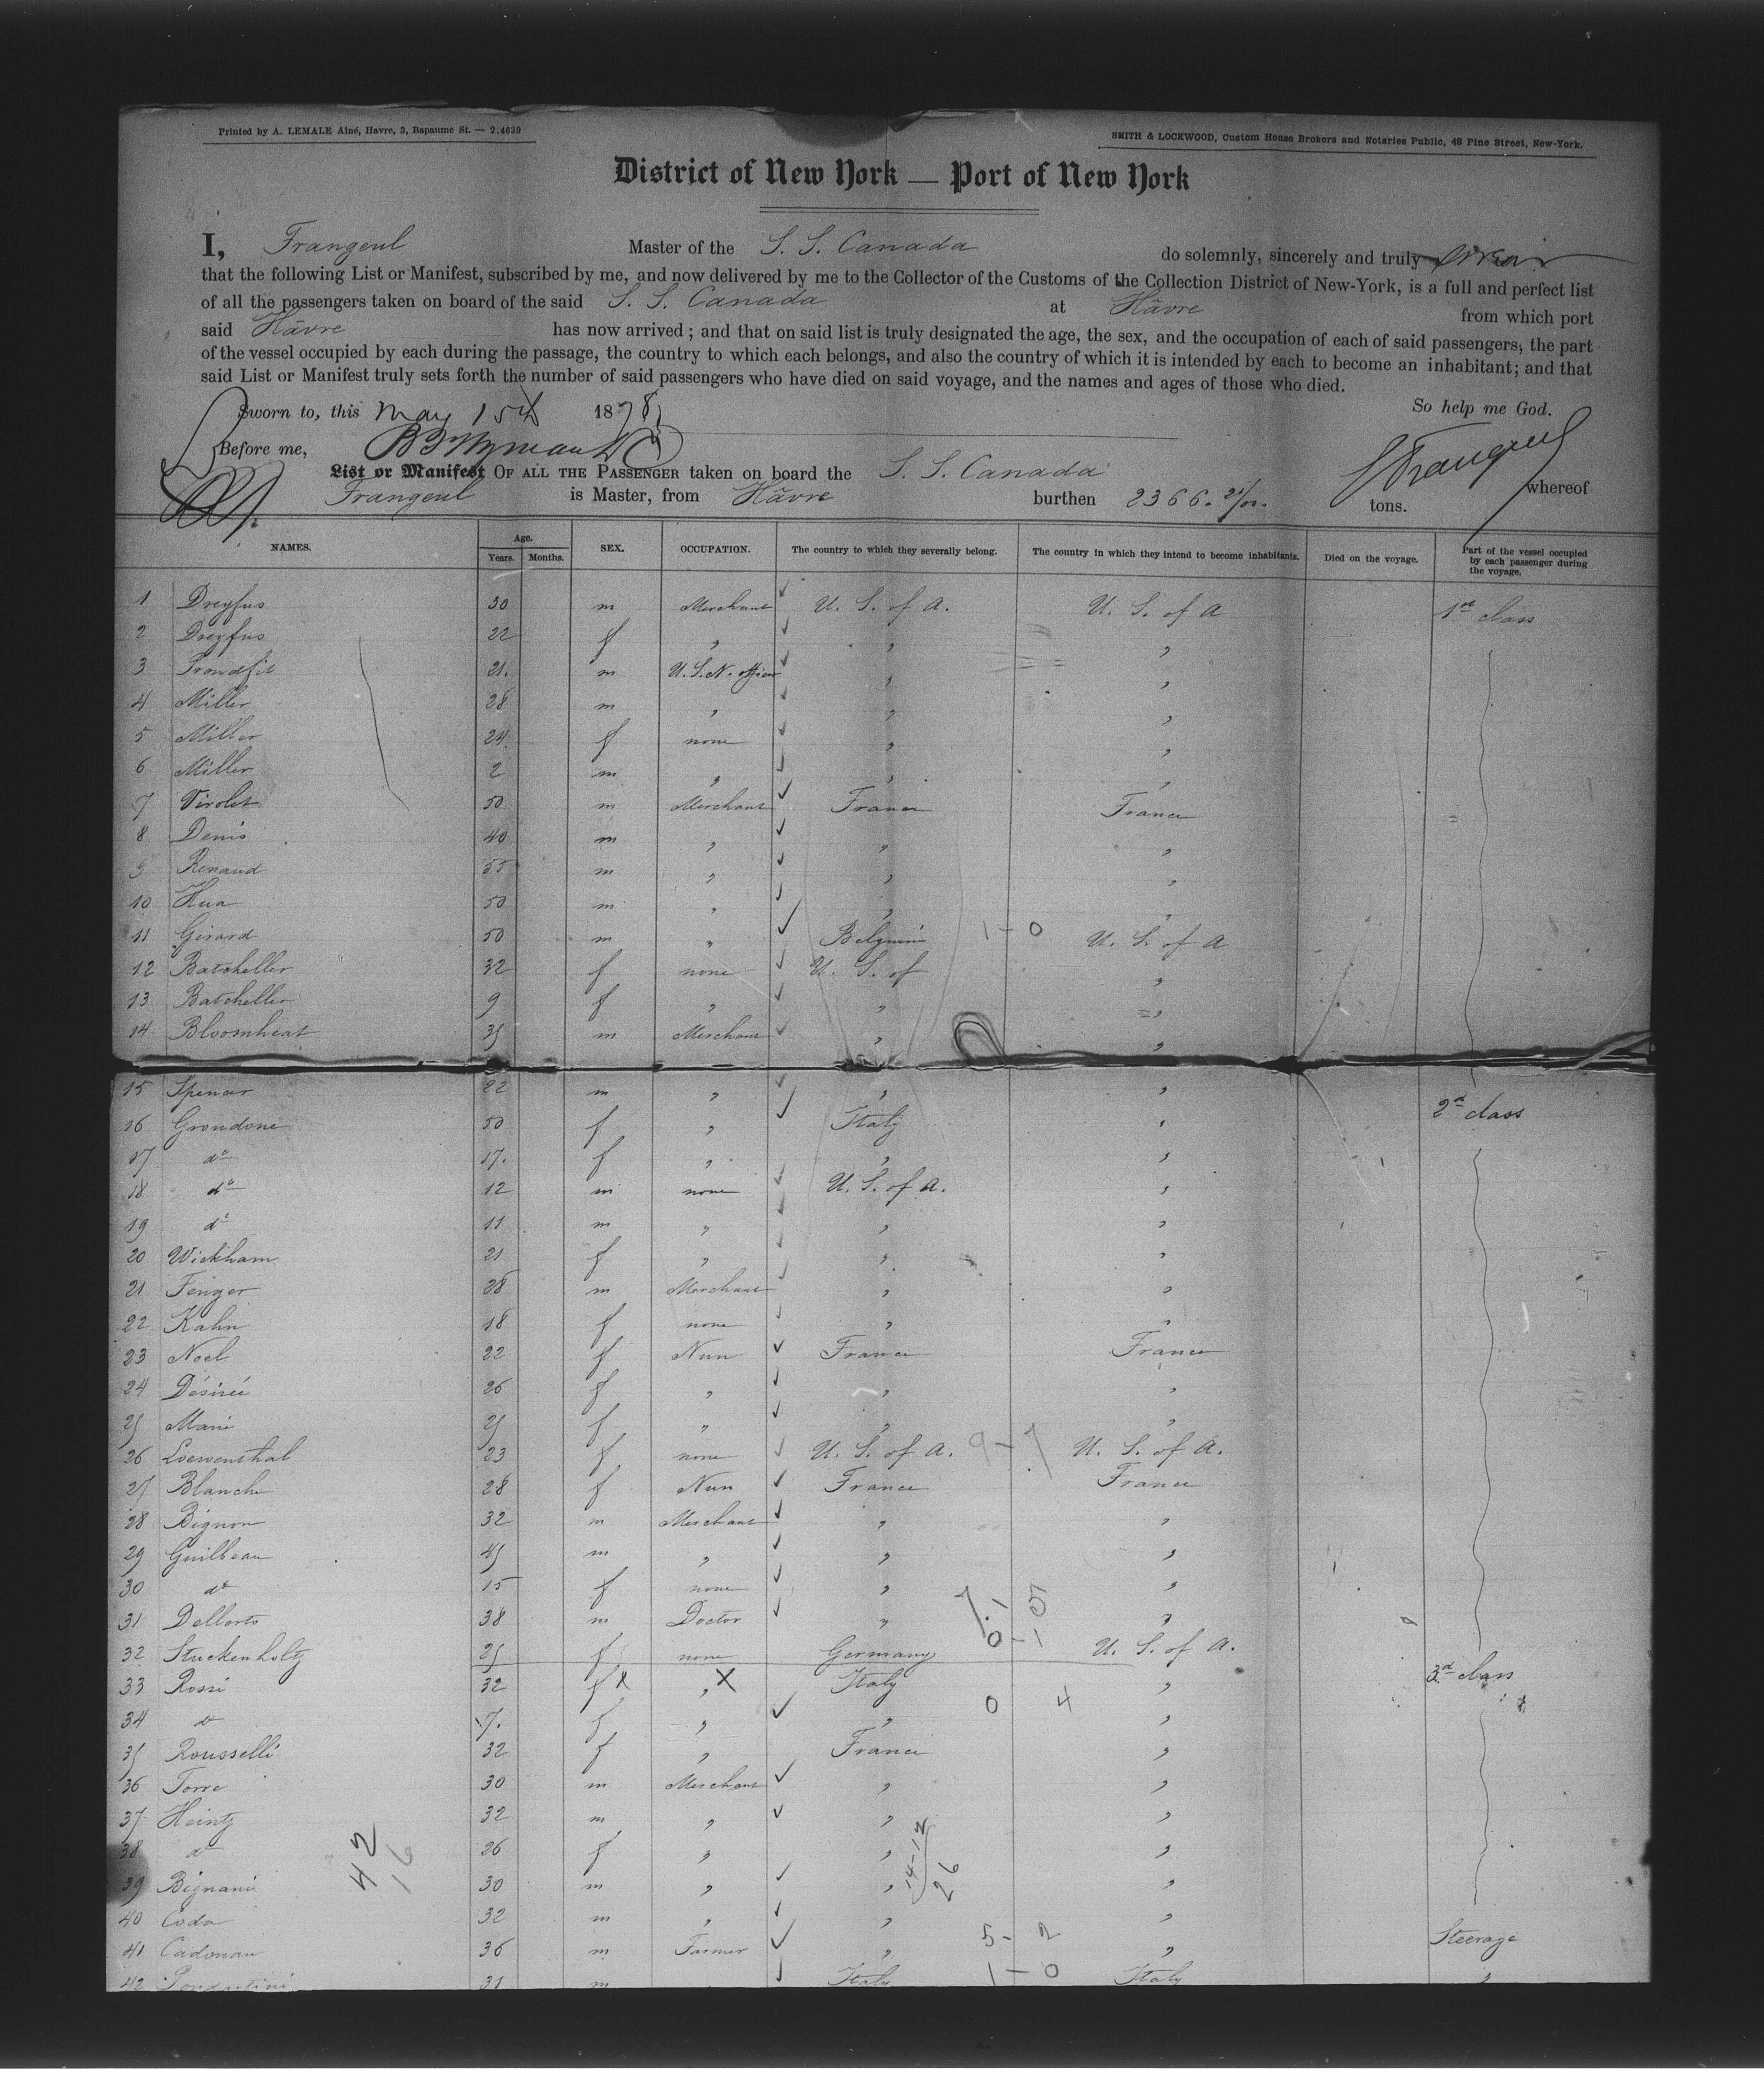 Printed by A. LEMALE Aîné, Havre, 3, Bapaume St. — 2.4639
SMITH & LOCKWOOD, Custom House Brokers and Notaries Public, 48 Pine Street, New-York.
District of New York — Port of New York
I, Frangeul Master of the S. S. Canada do solemnly, sincerely and truly swear
that the following List or Manifest, subscribed by me, and now delivered by me to the Collector of the Customs of the Collection District of New-York, is a full and perfect list
of all the passengers taken on board of the said S. S. Canada at Hâvre from which port
said Hâvre has now arrived; and that on said list is truly designated the age, the sex, and the occupation of each of said passengers, the part
of the vessel occupied by each during the passage, the country to which each belongs, and also the country of which it is intended by each to become an inhabitant; and that
said List or Manifest truly sets forth the number of said passengers who have died on said voyage, and the names and ages of those who died.
Sworn to, this May 15th 1878 So help me God.
Before me,
Frangeul
List or Manifest OF ALL THE PASSENGER taken on board the S. S. Canada whereof
Frangeul is Master, from Hâvre burthen 2366. tons.
NAMES. Age. Years. Months. SEX. OCCUPATION. The country to which they severally belong. The country in which they intend to become inhabitants. Died on the voyage. Part of the vessel occupied by each passenger during the voyage.
1 Dreyfus 30 m Merchant U. S. of A. U. S. of A 1st class
2 Dreyfus 22 f " " "
3 Proudfit 21. m U. S. N. officer " "
4 Miller 28 m " " "
5 Miller 24 f none " "
6 Miller 2 m " " "
7 Virolet 50 m Merchant France France
8 Denis 40 m " " "
9 Renaud 55 m " " "
10 Hua 50 m " " "
11 Girard 50 m " Belgium 1 - 0 U. S. of A
12 Batcheller 32 f none U. S. of "
13 Batcheller 9 f " " "
14 Bloomheat 35 m Merchant " "
15 Spencer 22 m " " "
16 Grondone 50 f " Italy " 2d class
17 do 17. f " " "
18 do 12 m none U. S. of A. "
19 do 11 m " " "
20 Wickham 21 f " " "
21 Fenger 28 m Merchant " "
22 Kahn 18 f none " "
23 Noel 22 f Nun France France
24 Désirée 26 f " " "
25 Marie 25 f " " "
26 Loewenthal 23 f none U. S. of A. 9 - 7 U. S. of A.
27 Blanche 28 f Nun France France
28 Bignon 32 m Merchant " "
29 Guilbeau 45 m " " "
30 do 15 f none " "
31 Dellorto 38 m Doctor " "
32 Stuckenholtz 25 f none Germany 0 - 1 U. S. of A.
33 Rossi 32 f x " x Italy " 3d class
34 do 7. f " " 0 4 "
35 Rousselli 32 f " France "
36 Torre 30 m Merchant " "
37 Heintz 32 m " " "
38 do 26 f " " "
39 Bignani 30 m " " "
40 Coda 32 m " " "
41 Cadonau 36 m Farmer " 5 - 2 " Steerage
42 31 m Italy 1 - 0 Italy "
42
16
14-12
26